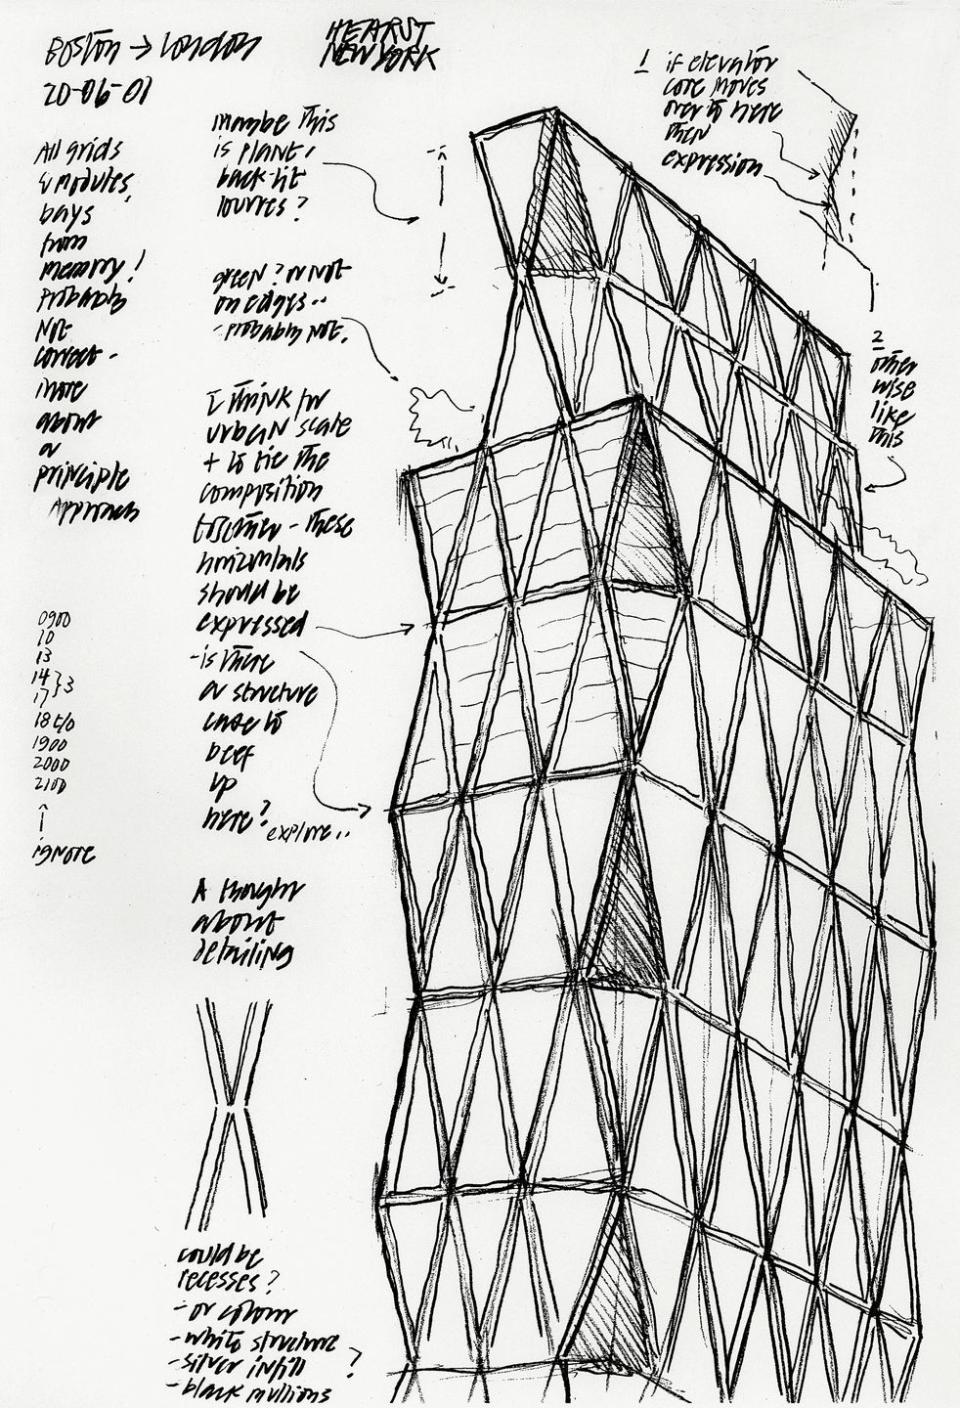 Boston → London
20-06-01
HEARST
NEW YORK
All grids
& modules,
bays
from
memory!
Probably
Not
correct -
more
about
a
principle
Approach
0900
10
13
14 } 3
17
18 c/o
1900
2000
2100
↑
ignore
maybe this
is plant,
back-lit
louvres?
green? or not
on edges..
- probably not.
I think for
urban scale
+ to tie the
composition
together - these
horizontals
should be
expressed
- is there
a structure
case to
beef
up
here?
explore..
A thought
about
detailing
could be
recesses?
- or colour
- white structure
- silver infill ?
- black mullions
1 if elevator
core moves
over to here
then
expression
2
other
wise
like
this